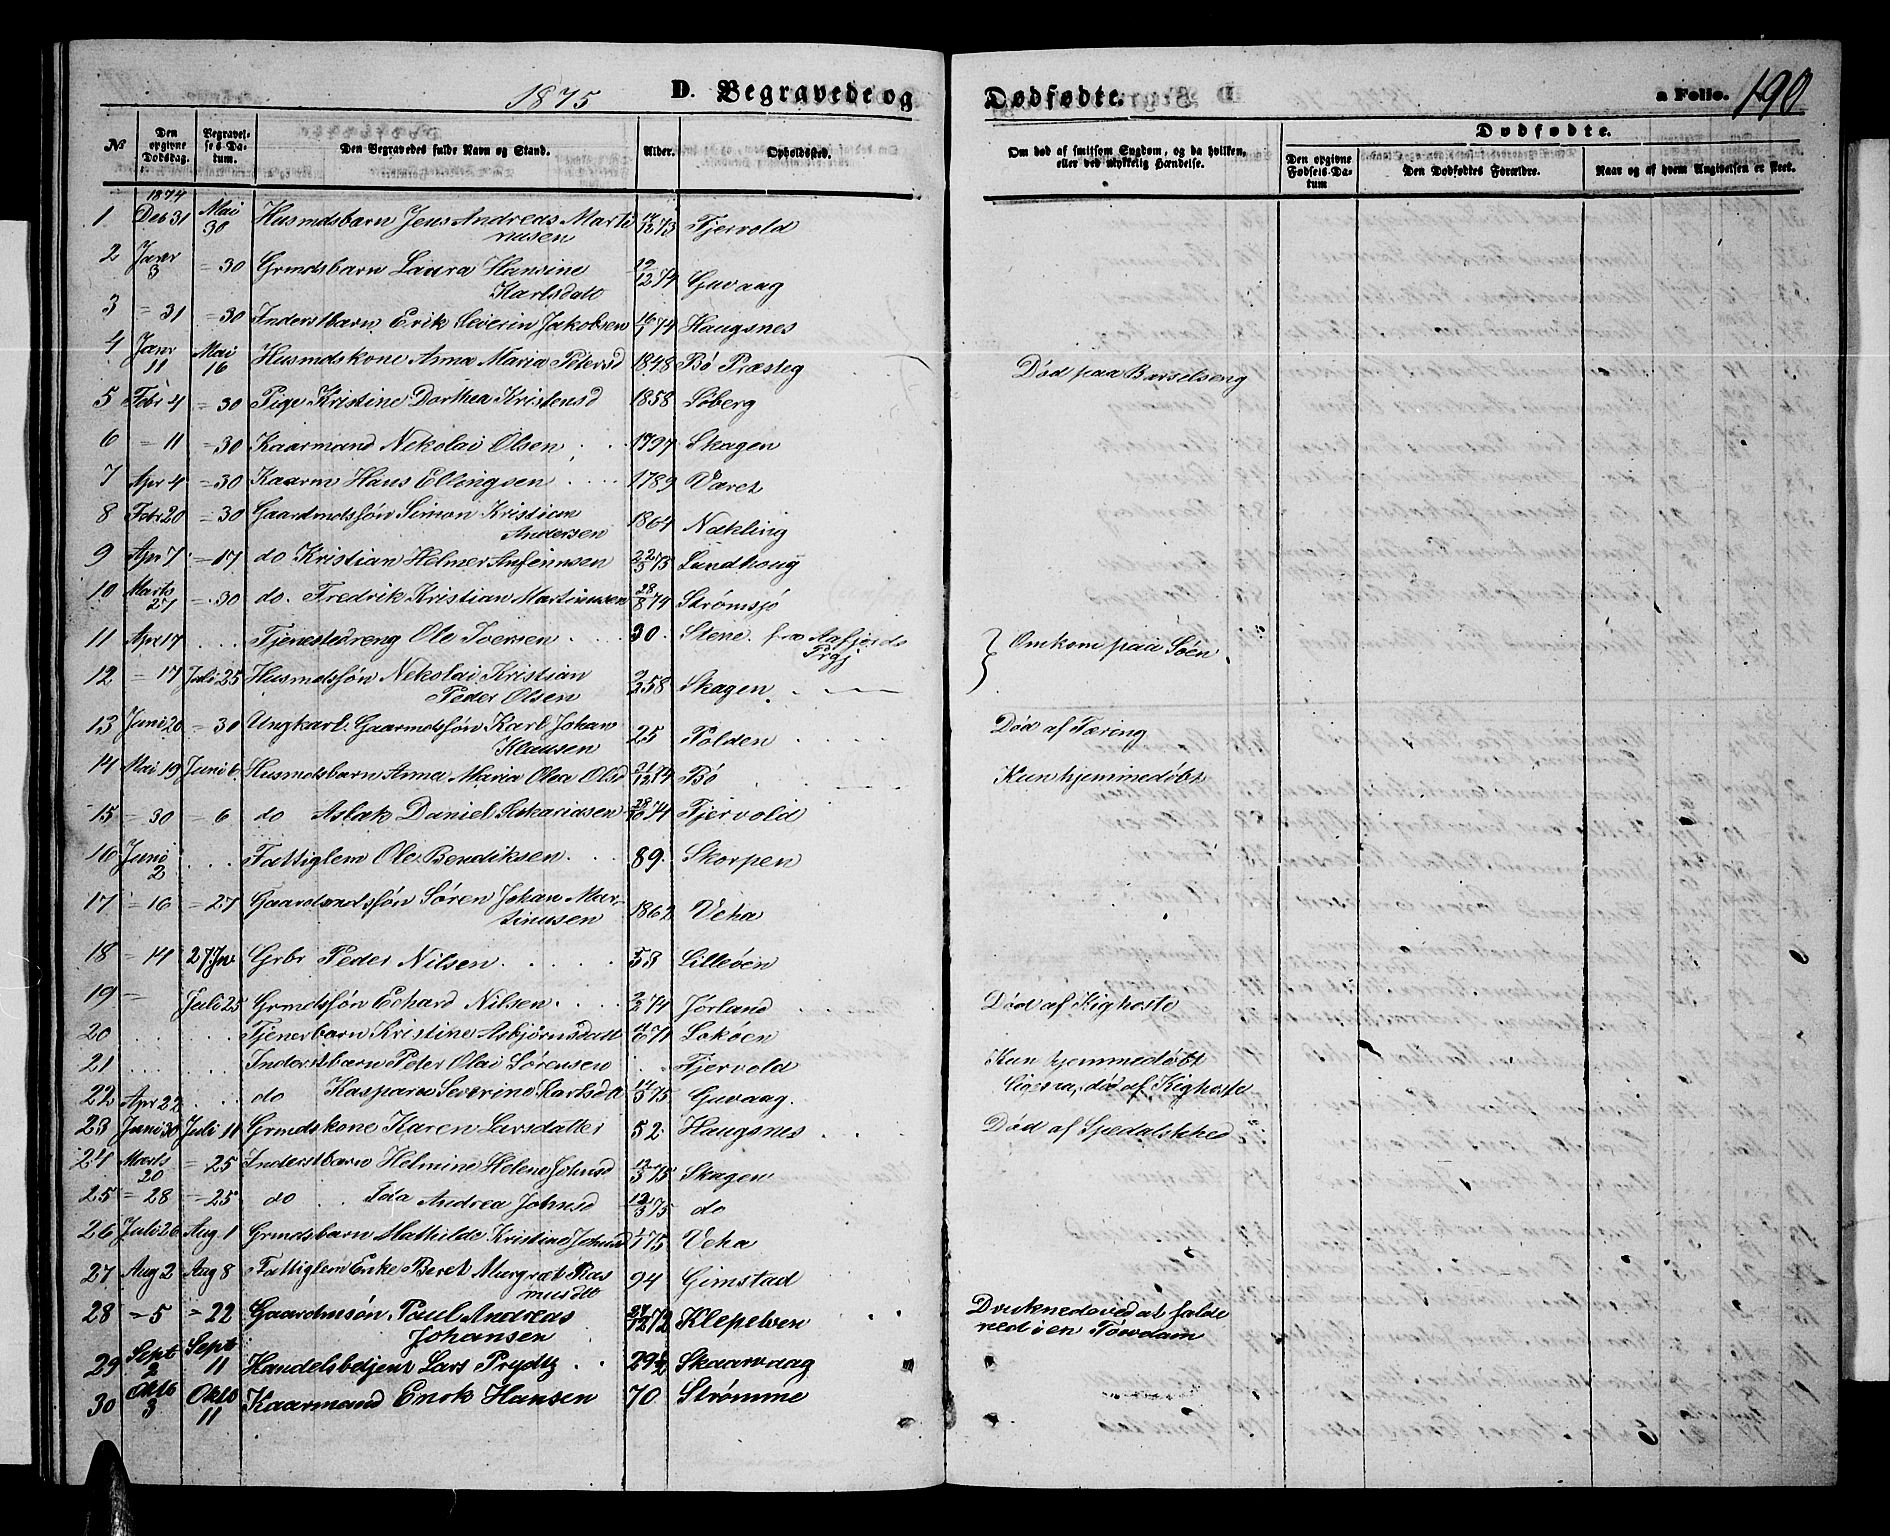 1875 D. Begravede og Dødfødte. a Folio. 190
No
Den opgivne Dødsdag.
Begravelses-Datum.
Den Begravedes fulde Navn og Stand.
Alder.
Opholdssted.
Om død af smitsom Sygdom, og da hvilken, eller ved ulykkelig Hændelse.
Dødfødte.
Den opgivne Fødsels-Datum
Den Dødfødtes Forældre.
Naar og af hvem Angivelsen er skeet.
1874
1 Deb 31 Mai 30 Husmdsbarn Jens Andreas Marti 73 Fjervold
nusen
2 Janr 3 = 30 Grmdsbarn Laura Hansine 19/12 74 Guvaag
Karlsdatt
3 = 31 = 30 Inderstbarn Erik Severin Jakobsen 16/1 74 Haugsnes
4 Janr 11 Mai 16 Husmdskone Anna Maria Petersd 1848 Bø Præsteg Død paa Barselseng
5 Febr 4 = 30 Pige Kristine Dorthea Kristensd 1858 Løberg
6 = 11 = 30 Kaarmand Nekolai Olsen 1797 Skagen
7 Apr 4 = 30 Kaarm Hans Ellingsen 1789 Været
8 Febr 20 = 30 Gaardmdsøn Simon Kristian 1864 Nækling
Andersen
9 Apr 7 = 17 do Kristian Helmer Anfinnsen 22/3 75 Lundhoug
10 Marts 27 = 30 do. Fredrik Kristian Martinusen 28/8 74 Strømsjø
11 Apr 17 Tjenestedreng Ole Iversen 30. Stene. fra Aafjords Omkom paa Søen
Prgj
12 = 17 Juli 25 Husmdsøn Nekolai Kristian 58 Skagen
Peder Olsen
13 Juni 20 = 30 Ungkarl. Gaarmdsøn Karl Johan 25 Polden Død af Tæring
Klausen
14 Mai 19 Juni 6 Husmdsbarn Anna Maria Olea Olsd 74 Bø Kun hjemmedøbt
15 = 30 = 6 do Aslak Daniel Sakariasen 28/10 74 Fjervold
16 Juni 2 Fattiglem Ole Bendiksen 89. Skorpen
17 = 16 = 27 Gaardmdsøn Søren Johan Mar- 1862 Veha
tinusen
18 = 14 27 Jun Grbr Peder Nilsen 58 Lilleøen
19 = Juli 25 Grmdsøn Echard Nilsen 74 Jørland Død af Kighoste
20 Tjenerbarn Kristine Asbjørnsdatt 71 Lokøen
21 Inderstbarn Peter Olai Sørensen Fjervold Kun hjemmedøbt
22 Apr 22 do Kasparia Severine Karlsda 14/3 75 Guvaag. død af Kighoste
23 Juni 30 Juli 11 Grmdskone Karen Larsdatter 52. Haugsnes Død af Spedalskhed
24 Marts 20 = 25 Inderstbarn Helmine Helene Johnsd 12/3 75 Skagen
25 = 28 = 25 do Ida Andrea Johnsd 12/3 75 do
26 Juli 26 Aug. 1 Grmdsbarn Mathilde Kristine Johnsd 75 Veha
27 Aug 2 Aug 8 Fattiglem Enke Beret Margræt Ras 94 Gimstad
musdtt
28 = 5 = 22 Gaardmsøn Paul Andreas 27/12 72 Klepelven Druknede ved at falde
Johansen ned i en Tøvdam
29 Sept 2 Sept 11 Handelsbetjent Lars Prydtz 29½ Skaarvaag
30 Oktb 3 Oktb 11 Kaarmand Enok Hansen 70 Strømme